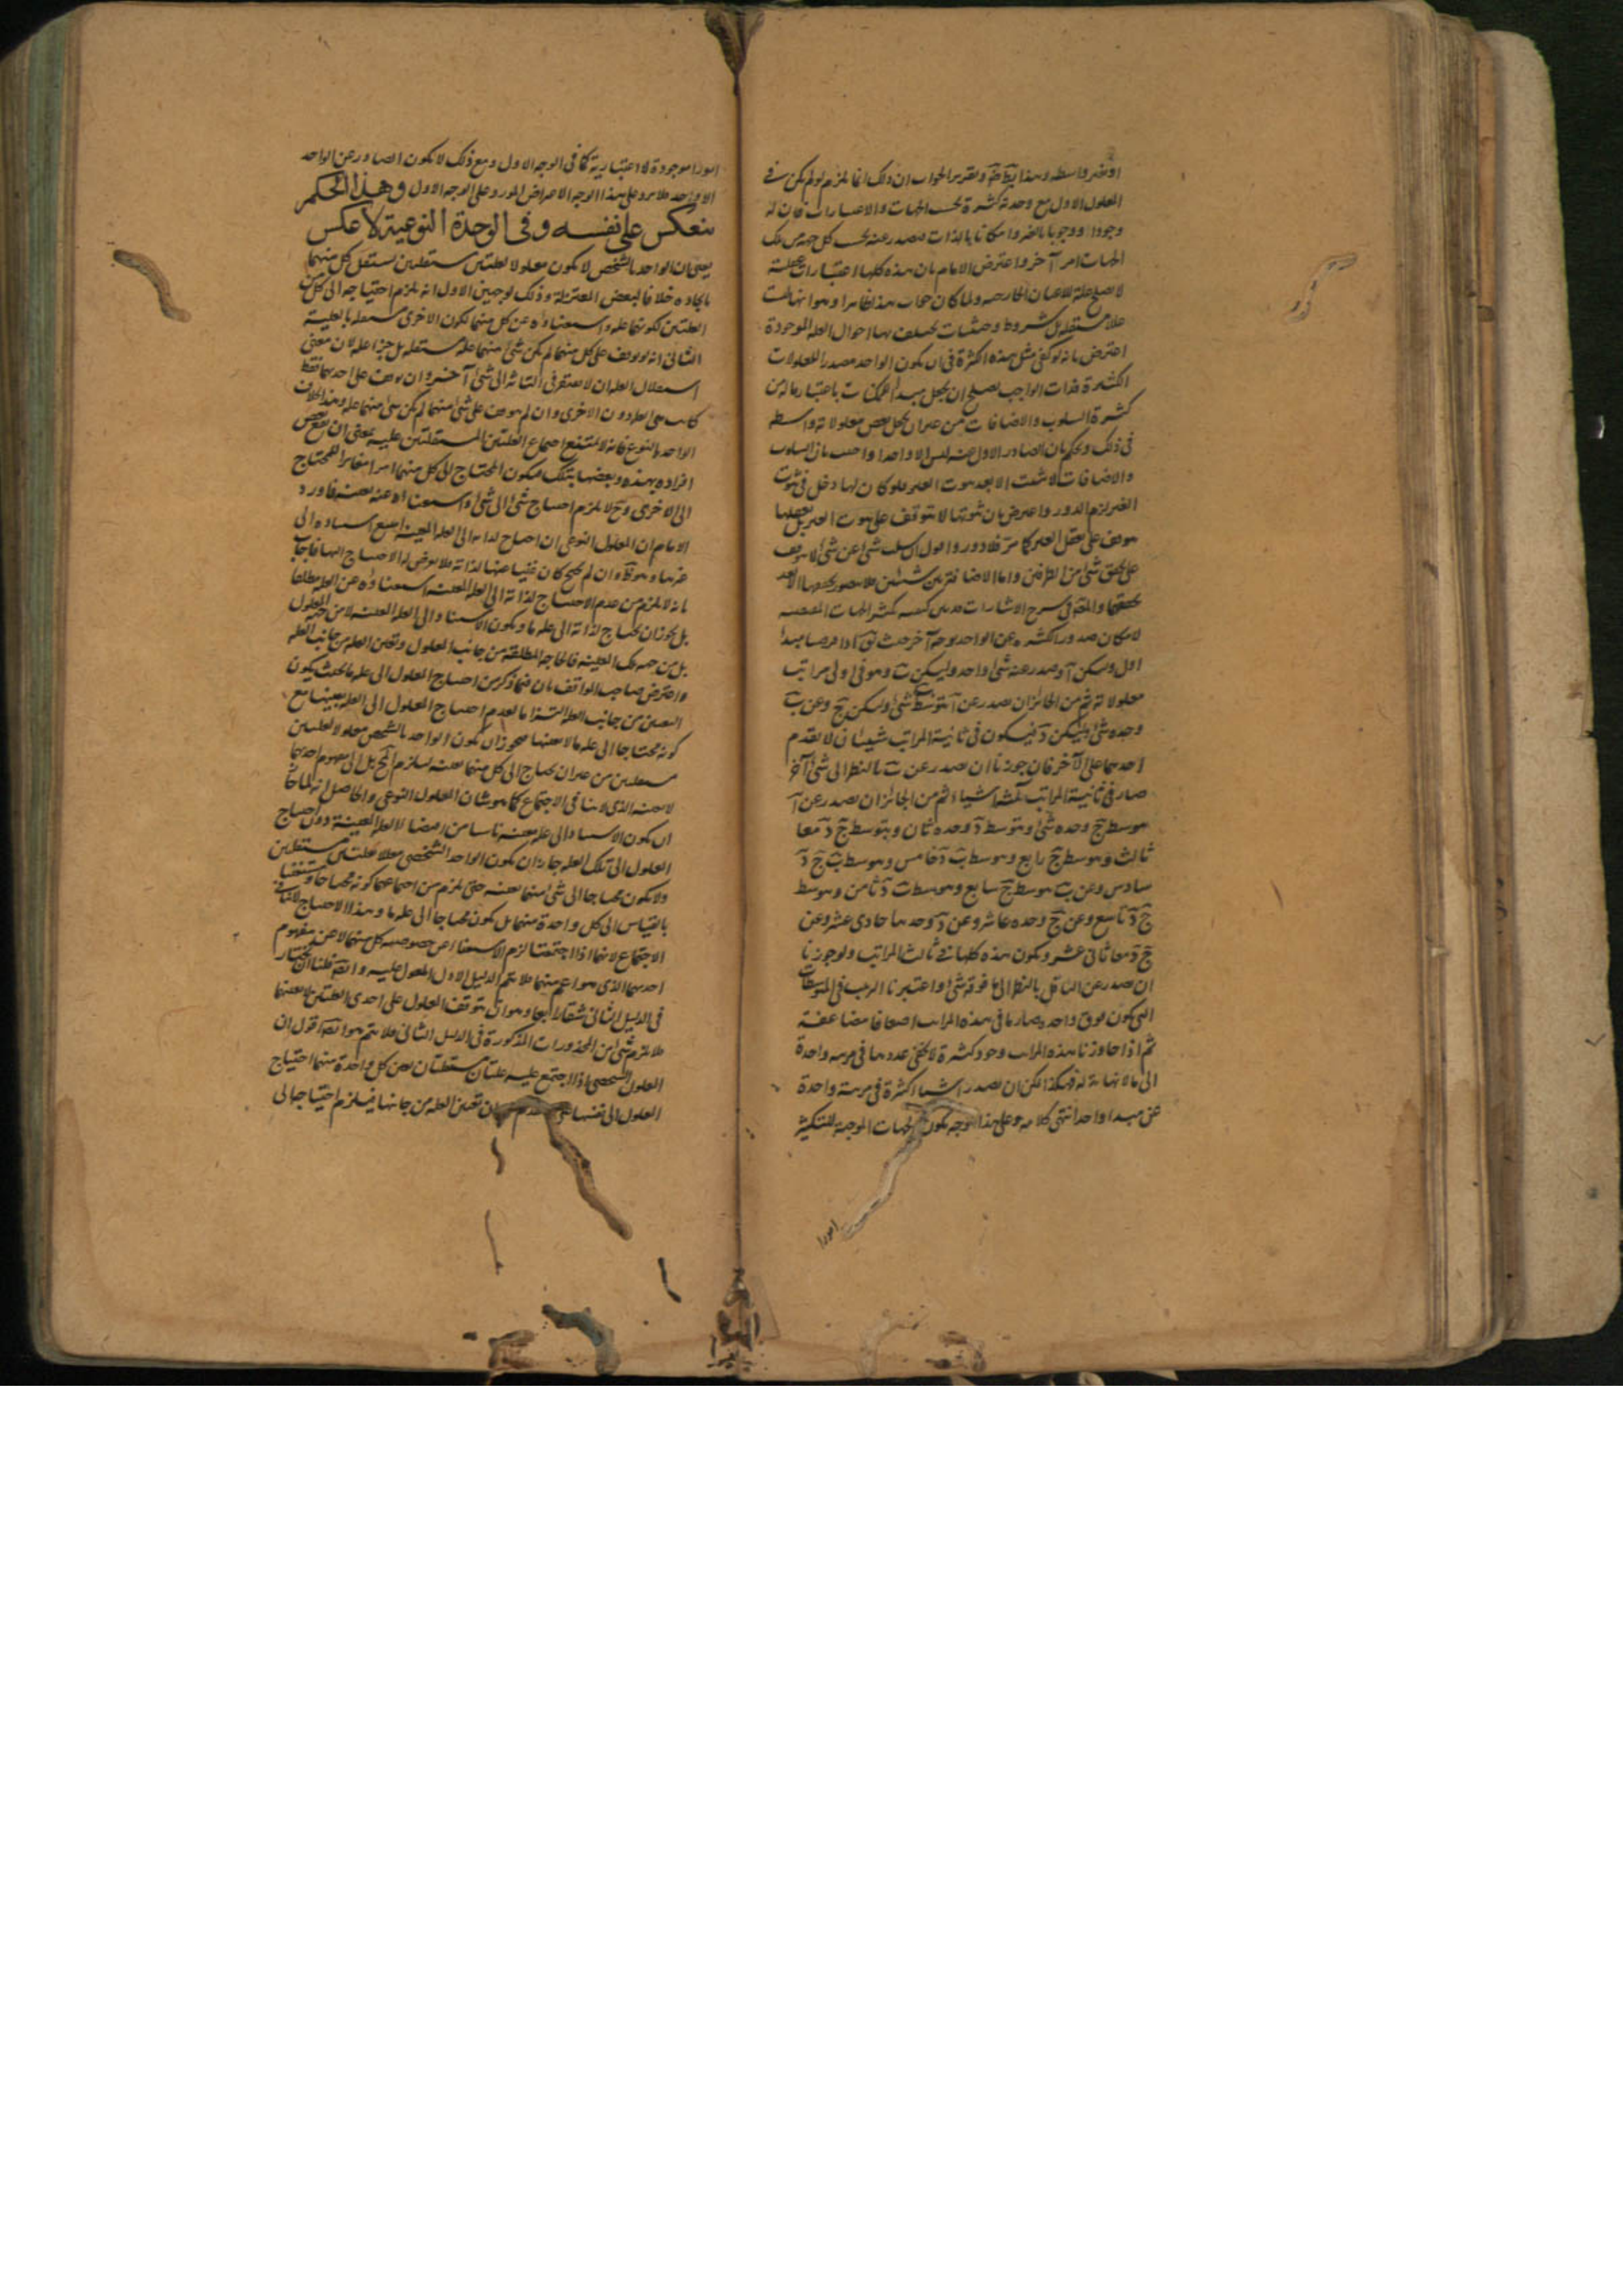 او بغير واسطة وهذا ايضا وتقرير الجواب ان ذلك انما يلزم لو لم يكن في
المعلول الاول مع وحدته كثرة بحسب الجهات والاعتبارات فان له
وجودا ووجوبا بالغير وامكانا بالذات فيصدر عنه بحسب كل جهة من تلك
الجهات امر آخر واعترض الامام بان هذه كلها اعتبارات عقلية
لا تصلح علة للاعيان الخارجية ولما كان جواب هذا ظاهرا وهو انها ليست
عللا مستقلة بل شروط وحيثيات تختلف بها احوال العلة الموجودة
اعترض بانه لو كفى مثل هذه الكثرة في ان يكون الواحد مصدر المعلولات
الكثيرة فذات الواجب تصلح ان يجعل مبدأ للممكنات باعتبار ما له من
كثرة السلوب والاضافات من غير ان يجعل بعض معلولاته واسطة
في ذلك ويحكم بان الصادر الاول عنه ليس الا واحدا واجيب بان السلوب
والاضافات لا تثبت الا بعد ثبوت الغير فلو كان لها دخل في ثبوت
الغير لزم الدور واعترض بان ثبوتها لا يتوقف على ثبوت الغير بل تعقلها
يتوقف على تعقل الغير كما مر فلا دور واقول ان سلب شئ عن شئ لا يتوقف
على تحقق شئ من الطرفين واما الاضافة بين شيئين فلا يتصور تحققها الا بعد
تحققهما والمص في شرح الاشارات بين كيفية تكثر الجهات المقتضية
لامكان صدور الكثرة عن الواحد بوجه آخر حيث قال اذا فرضنا مبدأ
اول وليكن آ وصدر عنه شئ واحد وليكن ب وهو في اولى مراتب
معلولاته ثم من الجائز ان يصدر عن آ بتوسط ب شئ وليكن ج وعن ب
وحده شئ وليكن د فيكون في ثانية المراتب شيئان لا تقدم
احدهما على الآخر فان جوزنا ان يصدر عن ب بالنظر الى شئ آخر
صار في ثانية المراتب ثلثة اشياء ثم من الجائز ان يصدر عن آ
بتوسط ج وحده شئ وبتوسط د وحده ثان وبتوسط ج د معا
ثالث وبتوسط ب ج رابع وبتوسط ب د خامس وبتوسط ب ج د
سادس وعن ب بتوسط ج سابع وبتوسط د ثامن وبتوسط
ج د تاسع وعن ج وحده عاشر وعن د وحدها حادى عشر وعن
ج د معا ثانى عشر وتكون هذه كلها في ثالث المراتب ولو جوزنا
ان يصدر عن السافل بالنظر الى ما فوقه شئ واعتبرنا الترتيب في المتوسطات
التي تكون فوق واحدة صار ما في هذه المراتب اضعافا مضاعفة
ثم اذا جاوزنا هذه المراتب وجد كثرة لا يحصى عددها في مرتبة واحدة
الى ما لا نهاية له فهكذا يمكن ان يصدر اشياء كثيرة في مرتبة واحدة
عن مبدا واحد انتهى كلامه وعلى هذا الوجه يكون الجهات الموجبة للتكثر
امورا
امورا موجودة لا اعتبارية كما في الوجه الاول ومع ذلك لا يكون الصادر عن الواحد
الا واحد فلا يرد على هذا الوجه الاعتراض المورود على الوجه الاول وهذا الحكم
ينعكس على نفسه وفى الوحدة النوعية لا عكس
يعنى ان الواحد بالشخص لا يكون معلولا لعلتين مستقلتين تستقل كل منهما
بايجاده خلافا لبعض المعتزلة وذلك لوجهين الاول انه يلزم احتياجه الى كل من
العلتين لكونهما علة واستغناؤه عن كل منهما لكون الاخرى مستقلة بالعلية
الثانى انه لو توقف على كل منهما لم يكن شئ منهما علة مستقلة بل جزء علة لان معنى
استقلال العلة ان لا يفتقر في التأثير الى شئ آخر وان توقف على احدهما فقط
كانت هي العلة دون الاخرى وان لم يتوقف على شئ منهما لم يكن شئ منهما علة وهذا بخلاف
الواحد بالنوع فانه لا يمتنع اجتماع العلتين المستقلتين عليه بمعنى ان يقع بعض
افراده بهذه وبعضها بتلك فيكون المحتاج الى كل منهما امرا مغايرا للمحتاج
الى الاخرى وح لا يلزم احتياج شئ الى شئ واستغناؤه عنه بعينه فاورد
الامام ان المعلول النوعى ان احتاج لذاته الى العلة المعينة امتنع استناده الى
غيرها وهو وان لم يحتج كان غنيا عنها لذاته فلا يعرض له الاحتياج اليها فاجاب
بانه لا يلزم من عدم الاحتياج لذاته الى العلة المعينة استغناؤه عن العلة مطلقا
بل يجوز ان يحتاج لذاته الى علة ما ويكون الاستناد الى العلة المعينة لا من جهة المعلول
بل من جهة تلك المعينة فالحاجة المطلقة من جانب المعلول وتعين العلة من جانب العلة
واعترض صاحب المواقف بان فيما ذكر من احتياج المعلول الى علة ما بحيث يكون
التعين من جانب العلة التزاما بعدم احتياج المعلول الى العلة بعينها مع
كونه محتاجا الى علة ما لا بعينها فيجوز ان يكون الواحد بالشخص معلولا لعلتين
مستقلتين من غير ان يحتاج الى كل منهما بعينه ليلزم المح بل الى مفهوم احدهما
لا بعينه الذى لا ينافى الاجتماع كما هو شأن المعلول النوعى والحاصل انه لما جاز
ان يكون الاستناد الى علة معينة ناشيا من اقتضاء العلة المعينة دون احتياج
المعلول الى تلك العلة جاز ان يكون الواحد الشخصى معللا بعلتين مستقلتين
ولا يكون محتاجا الى شئ منهما بعينه حتى يلزم من اجتماعهما كونه محتاجا ومستغنيا
بالقياس الى كل واحدة منهما بل يكون محتاجا الى علة ما وهذا الاحتياج لا ينافى
الاجتماع لانهما اذا اجتمعتا لزم الاستغناء عن خصوصية كل منهما لا عن مفهوم
احدهما الذى هو اعم منهما فلا يتم الدليل الاول المعول عليه وايضا فلنا ان نختار
في الدليل الثانى شقا رابعا وهو ان يتوقف المعلول على احدى العلتين لا بعينها
فلا يلزم شئ من المحذورات المذكورة في الدليل الثانى فلا يتم هو ايضا اقول ان
المعلول الشخصى اذا اجتمع عليه علتان مستقلتان فمن كل واحدة منهما احتياج
المعلول الى نفسها ان تعين العلة من جانبها فيلزم احتياجه الى